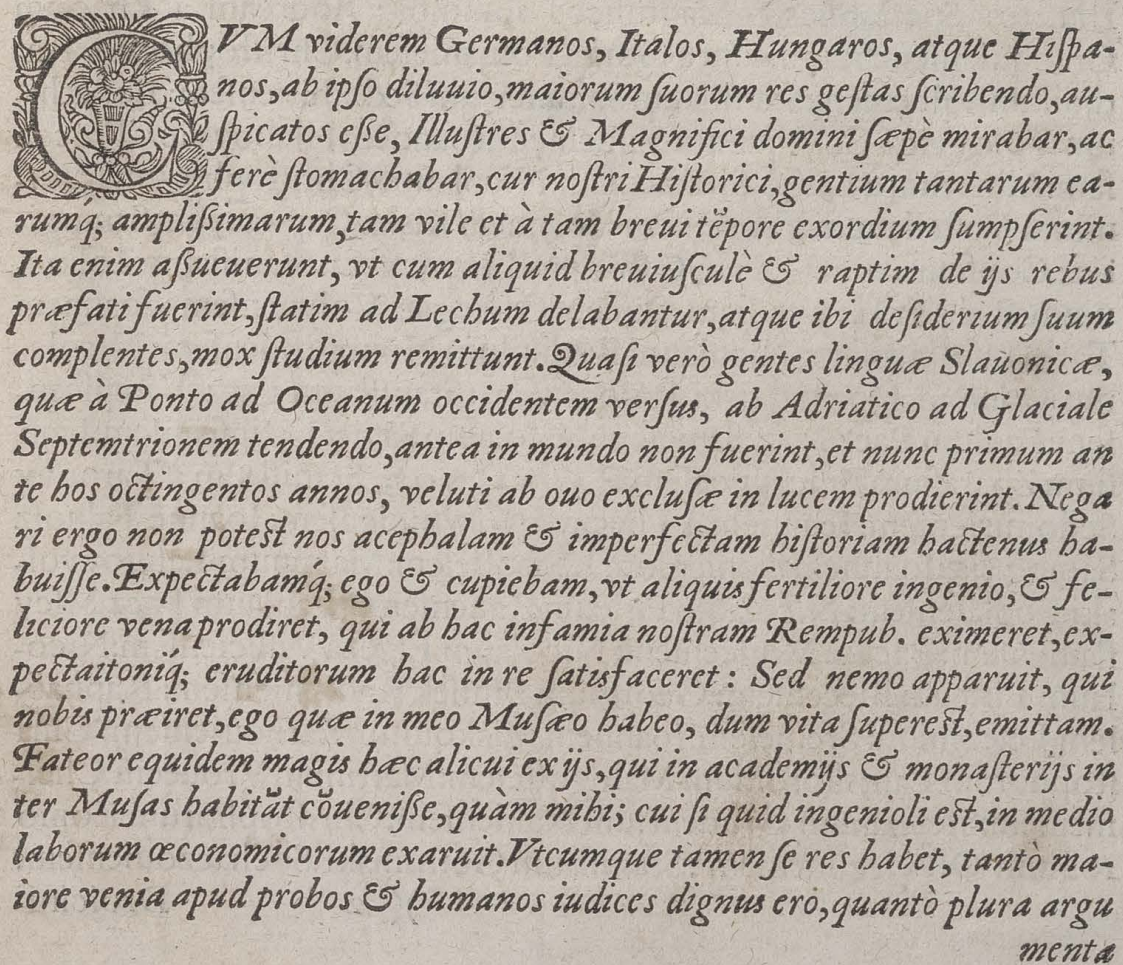 CVM viderem Germanos, Italos, Hungaros, atque Hiſpa-
nos, ab ipſo diluuio, maiorum ſuorum res geſtas ſcribendo, au-
ſpicatos eſſe, Illuſtres & Magnifici domini ſæpè mirabar, ac
ferè ſtomachabar, cur noſtri Hiſtorici, gentium tantarum ea-
rumq́; ampliſſimarum, tam vile et à tam breui tēpore exordium ſumpſerint.
Ita enim aſſueuerunt, vt cum aliquid breuiuſculè & raptim de ijs rebus
præfati fuerint, ſtatim ad Lechum delabantur, atque ibi deſiderium ſuum
complentes, mox ſtudium remittunt. Quaſi verò gentes linguæ Slauonicæ,
quæ à Ponto ad Oceanum occidentem verſus, ab Adriatico ad Glaciale
Septemtrionem tendendo, antea in mundo non fuerint, et nunc primum an
te hos octingentos annos, veluti ab ouo excluſæ in lucem prodierint. Nega
ri ergo non poteſt nos acephalam & imperfectam hiſtoriam hactenus ha-
buiſſe. Expectabamq́; ego & cupiebam, vt aliquis fertiliore ingenio, & fe-
liciore vena prodiret, qui ab hac infamia noſtram Rempub. eximeret, ex-
pectaitoniq́; eruditorum hac in re ſatisfaceret: Sed nemo apparuit, qui
nobis præiret, ego quæ in meo Muſæo habeo, dum vita ſupereſt, emittam.
Fateor equidem magis hæc alicui ex ijs, qui in academijs & monaſterijs in
ter Muſas habitāt cōueniſſe, quàm mihi; cui ſi quid ingenioli eſt, in medio
laborum œconomicorum exaruit. Vtcumque tamen ſe res habet, tantò ma-
iore venia apud probos & humanos iudices dignus ero, quantò plura argu
menta